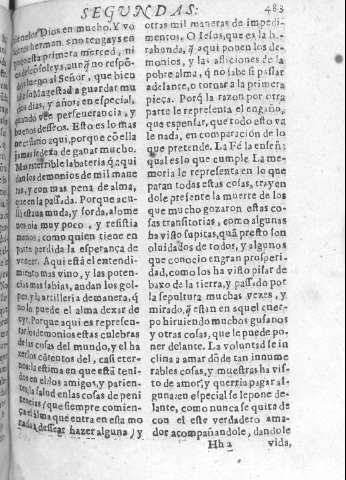 SEGVNDAS:
483
en los Dios en mucho. Y vo
hermanas no tengays en
esta primera merced, ni
aunq̃ no respõ
luego al Señor, que bien
su Magestad a guardar mu
os dias, y años, en especial,
quando vee perseuerancia, y
buenos desseos. Esto es lo mas
necessario aqui, porque cõ ella
jamas se dexa de ganar mucho.
Mas terrible la bateria q̃ aqui
dan los demonios de mil mane
ras, y con mas pena de alma,
que en la passada. Porque acu
lla estaua muda, y sorda, alome
nos oia muy poco, y resistia
menos, como quien tiene en
parte perdida la esperança de
vencer. Aqui està el entendi
miento mas viuo, y las poten
cias mas sabias, andan los gol-
pes, y la artilleria de manera, q̃
no puede el alma dexar de
oyr. Porque aqui es represen-
tar los demonios estas culebras
de las cosas del mundo, y el ha
zer los cõtentos del, casi eter-
nos: la estima en que està teni-
dos en el, los amigos, y parien-
tes, la salud en las cosas de peni
tencias (que siempre comien-
ça el alma que entra en esta mo
rada, dessear hazer alguna) y
otras mil maneras de impedi-
mentos. O Iesus, que es la ba-
rahunda, q̃ aqui ponen los de-
monios, y las aflicciones de la
pobre alma, q̃ no sabe si passar
adelante, o tornar a la primera
pieça. Porq̃ la razon por otra
parte le representa el engaño,
que es pensar, que todo esto va
le nada, en comparacion de lo
que pretende. La Fè la enseña
qual es lo que cumple. La me-
moria le representa en lo que
paran todas estas cosas, trayen
dole presente la muerte de los
que mucho gozaron estas co-
sas transitorias, como algunas
ha visto supitas, quã presto son
oluidados de todos, y algunos
que conocio en gran prosperi-
dad, como los ha visto pisar de
baxo de la tierra, y passado por
la sepultura muchas vezes, y
mirado, q̃ estàn en aquel cuer-
po hiruiendo muchos gusanos
y otras cosas, que le puede po-
ner delante. La voluntad se in
clina a amar dõde tan innume
rables cosas, y muestras ha vis-
to de amor, y querria pagar al-
guna: en especial se le pone de-
lante, como nunca se quita de
con el este verdadero ama-
dor acompañandole, dandole
Hh 2
vida,